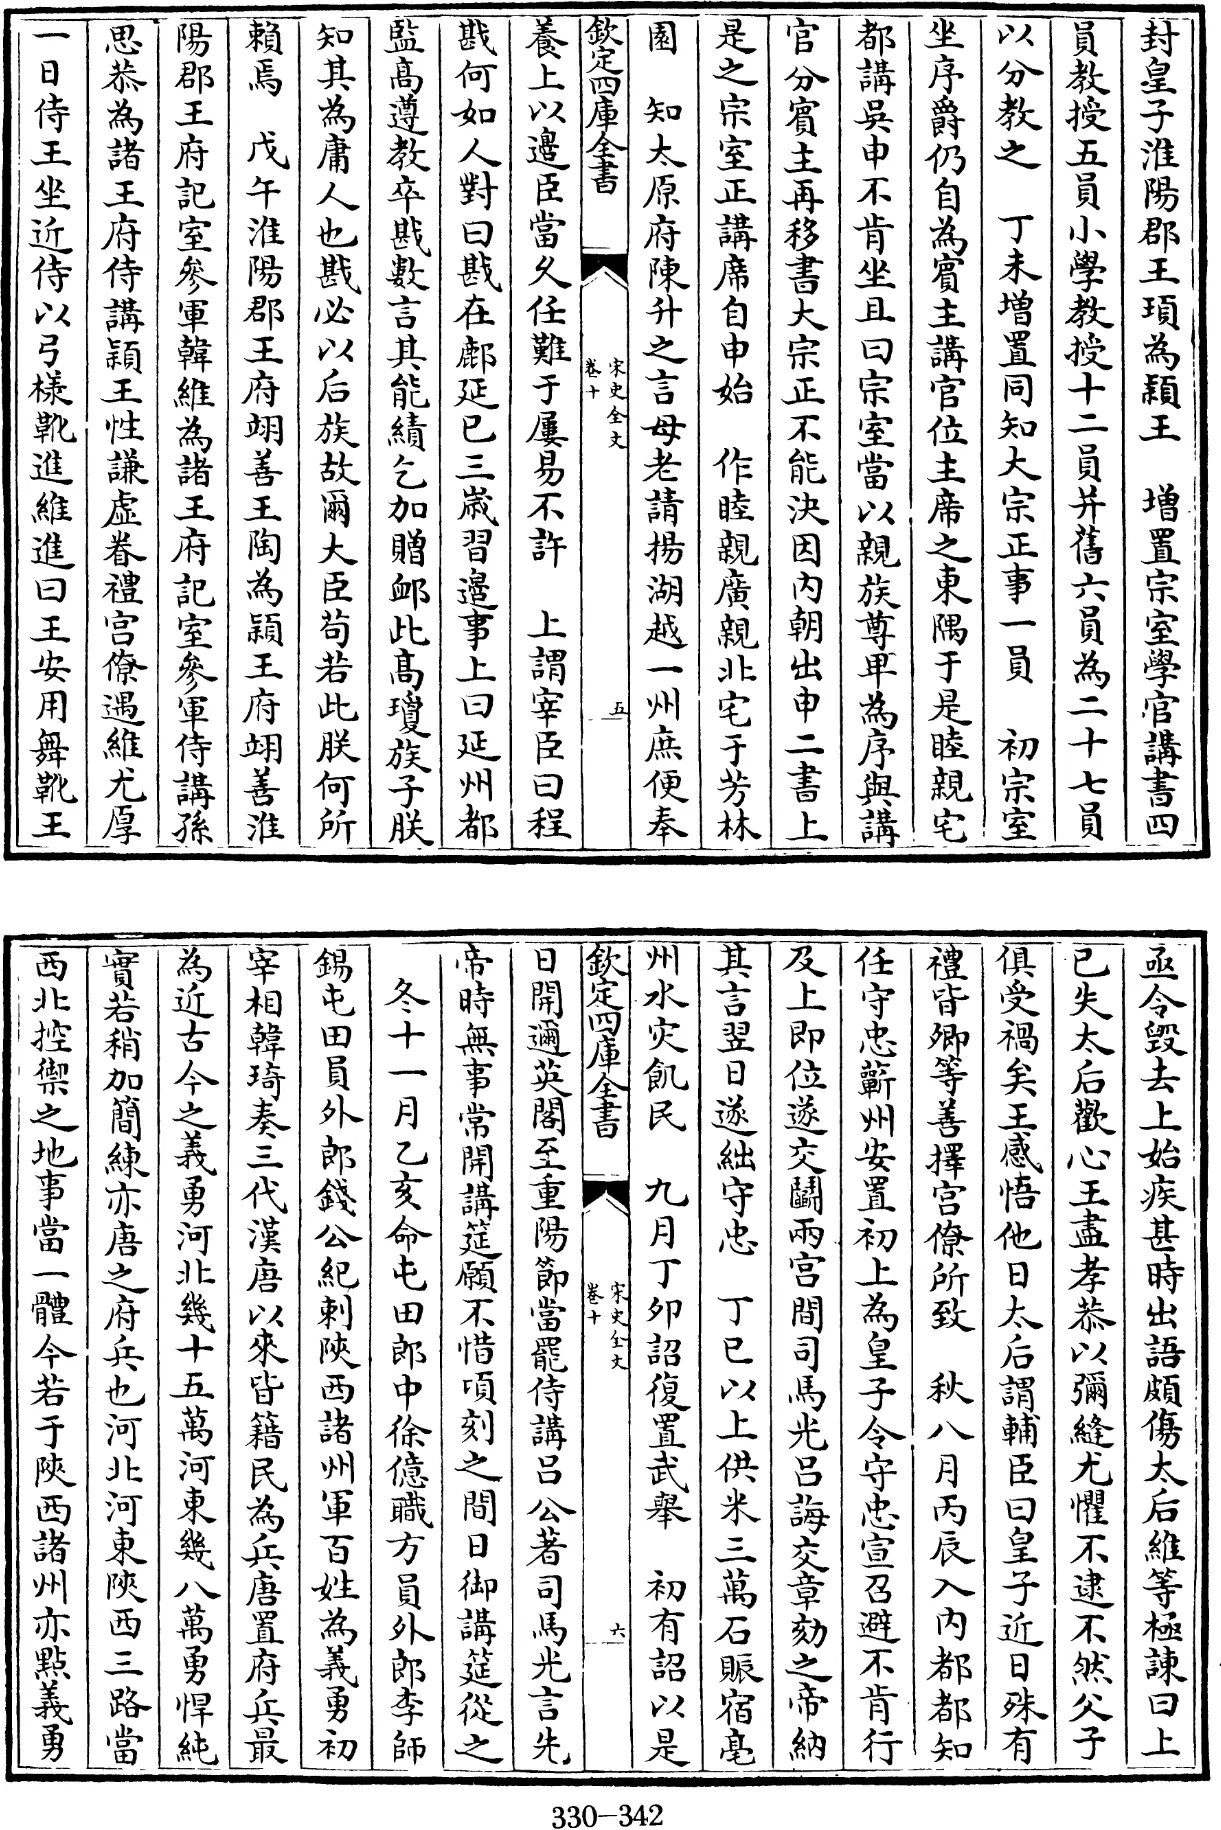 封皇子淮陽郡王頊為潁王　增置宗室學官講書四
員教授五員小學教授十二員并舊六員為二十七員
以分教之　丁未增置同知大宗正事一員　初宗室
坐序爵仍自為賓主講官位主席之東隅于是睦親宅
都講吳申不肯坐且曰宗室當以親族尊卑為序與講
官分賓主再移書大宗正不能決因內朝出申二書上
是之宗室正講席自申始　作睦親廣親北宅于芳林
園　知太原府陳升之言母老請揚湖越一州庶便奉
欽定四庫全書
宋史全文
卷十
五
養上以邊臣當久任難于屢易不許　上謂宰臣曰程
戡何如人對曰戡在鄜延已三歲習邊事上曰延州都
監高遵教卒戡數言其能績乞加贈卹此高瓊族子朕
知其為庸人也戡必以后族故爾大臣苟若此朕何所
賴焉　戊午淮陽郡王府翊善王陶為潁王府翊善淮
陽郡王府記室參軍韓維為諸王府記室參軍侍講孫
思恭為諸王府侍講潁王性謙虛眷禮宮僚遇維尤厚
一日侍王坐近侍以弓樣靴進維進曰王安用舞靴王
亟令毀去上始疾甚時出語頗傷太后維等極諫曰上
已失太后歡心王盡孝恭以彌縫尤懼不逮不然父子
俱受禍矣王感悟他日太后謂輔臣曰皇子近日殊有
禮皆卿等善擇宮僚所致　秋八月丙辰入內都都知
任守忠蘄州安置初上為皇子令守忠宣召避不肯行
及上即位遂交鬭兩宮間司馬光呂誨交章劾之帝納
其言翌日遂絀守忠　丁巳以上供米三萬石賑宿亳
州水灾飢民　九月丁卯詔復置武舉　初有詔以是
欽定四庫全書
宋史全文
卷十
六
日開邇英閣至重陽節當罷侍講呂公著司馬光言先
帝時無事常開講筵願不惜頃刻之間日御講筵從之
冬十一月乙亥命屯田郎中徐億職方員外郎李師
錫屯田員外郎錢公紀刺陝西諸州軍百姓為義勇初
宰相韓琦奏三代漢唐以來皆籍民為兵唐置府兵最
為近古今之義勇河北幾十五萬河東幾八萬勇悍純
實若稍加簡練亦唐之府兵也河北河東陝西三路當
西北控禦之地事當一體今若于陝西諸州亦點義勇
330-342